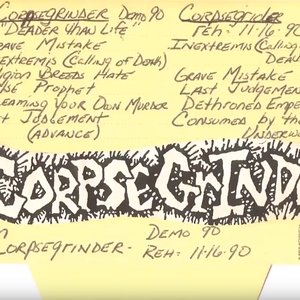 Corpsegrinder Demo 90
"Deader than Life"
Grave Mistake
Inextremis (Calling of Death)
Religion Breeds Hate
False Prophet
Dreaming Your Own Murder
Last Judgement
(Advance)
Corpsegrinder
Reh: 11-16-90
Inextremis (Calling of
Death
Grave Mistake
Last Judgement
Dethroned Empe
Consumed by the
Underw
CORPSEGRIND
Corpsegrinder - Demo 90
Reh: 11-16-90